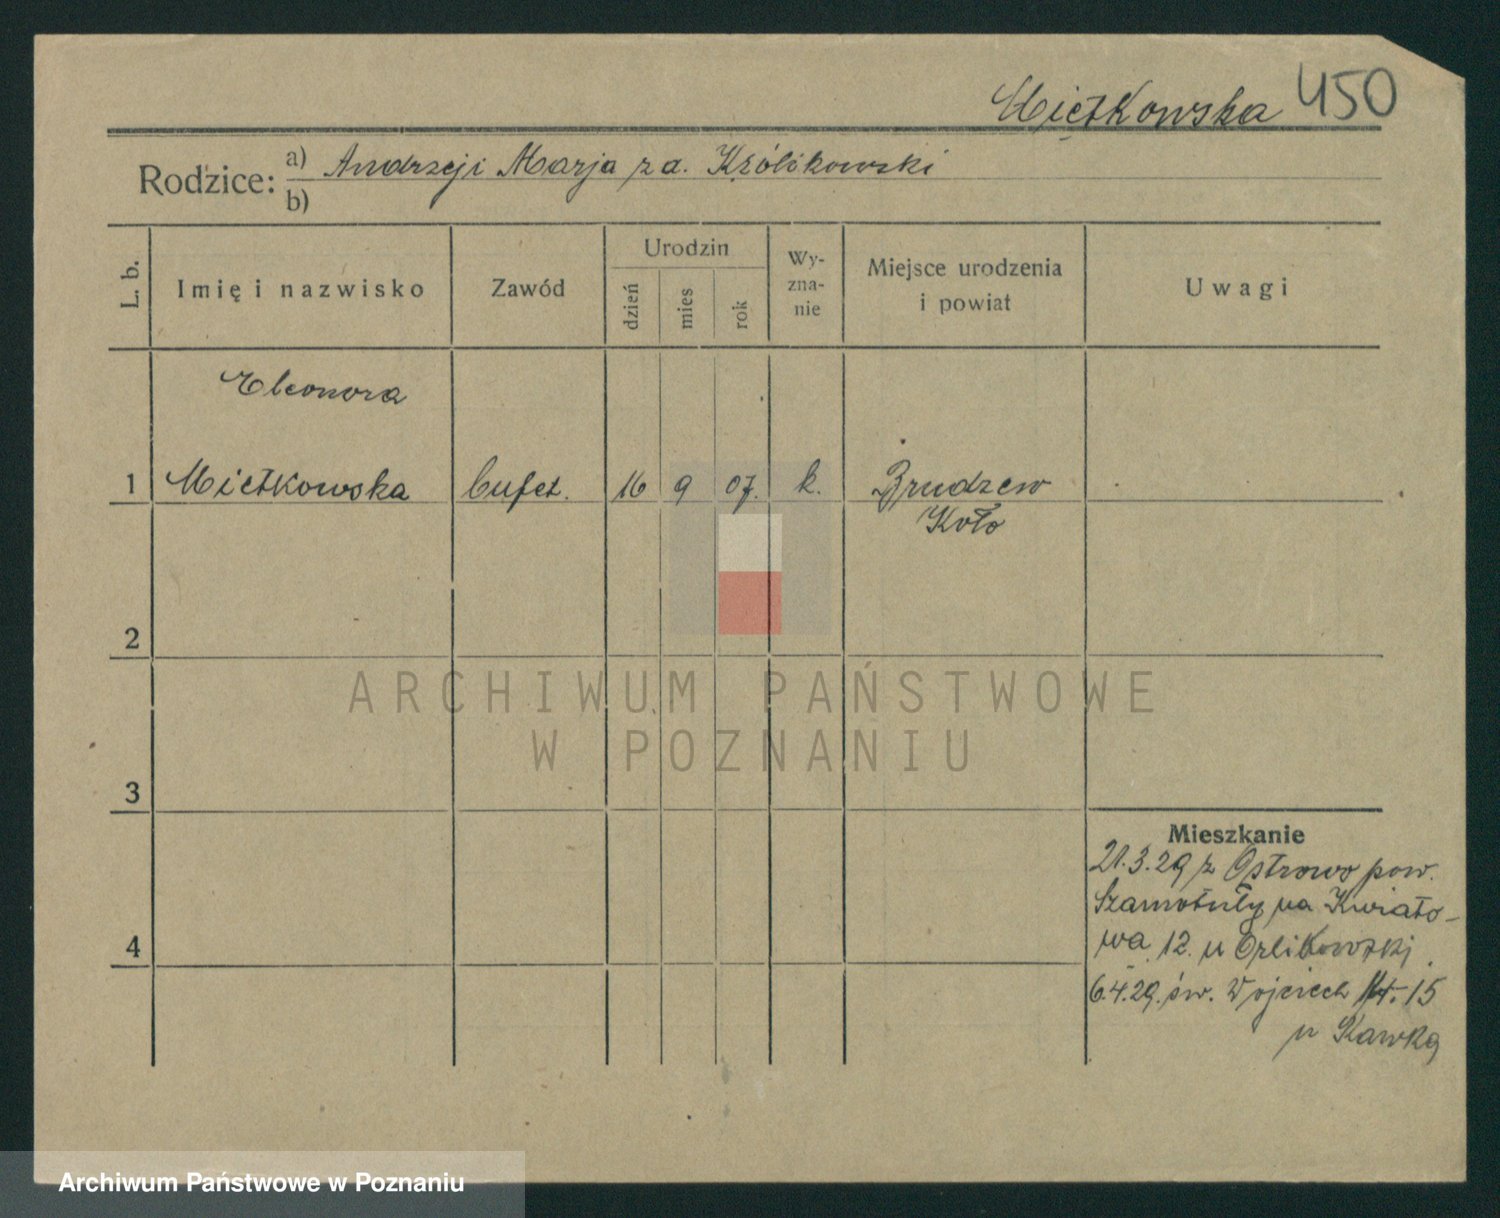 Mietkowska 450
Rodzice: a) Andrzej i Marja z d. Królikowski
b)
L. b. Imię i nazwisko Zawód Urodzin dzień mies rok Wy- zna- nie Miejsce urodzenia i powiat Uwagi
Eleonora
1 Mietkowska bufet. 16 9 07. k. Brudzew
Koło
2
ARCHIWUM PAŃSTWOWE
W POZNANIU
3
Mieszkanie
21.3.29 z Ostrowo pow.
Szamotuły na Kwiato-
4 wa 12. u Orlikowski.
6.4.29. św. Wojciech 15
u Kawka
Archiwum Państwowe w Poznaniu